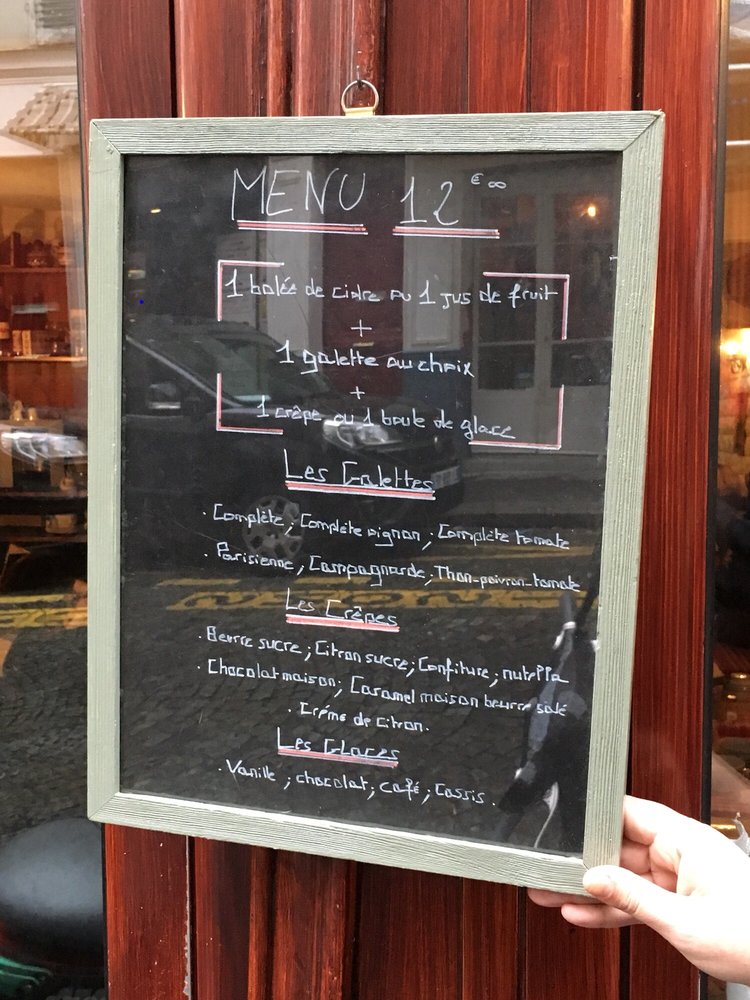 MENU 12 €00
1 bolée de cidre ou 1 jus de fruit
+
1 galette au choix
+
1 crêpe ou 1 boule de glace
Les Galettes
. Complète ; Complète oignon ; Complète tomate
. Parisienne ; Campagnarde ; Thon-poivron-tomate
Les Crêpes
. Beurre sucre ; Citron sucre ; Confiture ; nutella
. Chocolat maison ; Caramel maison beurre salé
. Crème de citron.
Les Glaces
. Vanille ; chocolat ; café ; Cassis.